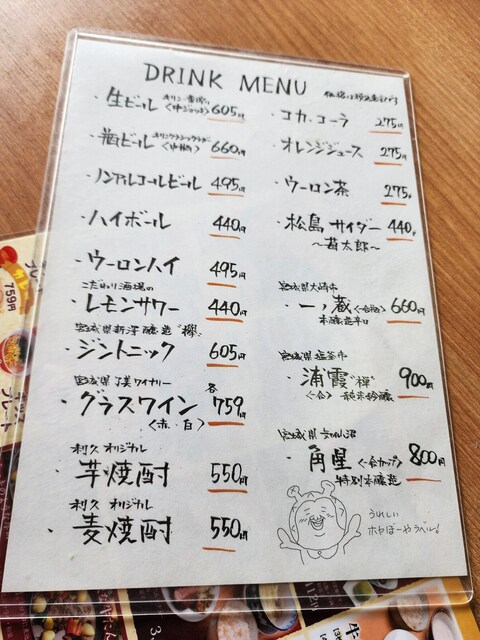 DRINK MENU
価格は税込表記です
・生ビール キリン一番搾り <中ジョッキ> 605円
・瓶ビール キリンクラシックラガー <中瓶> 660円
・ノンアルコールビール 495円
・ハイボール 440円
・ウーロンハイ 495円
こだわり酒場の
・レモンサワー 440円
宮城県新澤醸造"欅"
・ジントニック 605円
宮城県 了美ワイナリー
・グラスワイン 各 759円
<赤・白>
利久 オリジナル
・芋焼酎 550円
利久 オリジナル
・麦焼酎 550円
・コカ・コーラ 275円
・オレンジジュース 275円
・ウーロン茶 275円
・松島サイダー 440円
〜甚太郎〜
宮城県大崎市
・一ノ蔵 <一合> 660円
本醸造辛口
宮城県塩釜市
・浦霞"禅" 900円
<一合> 純米吟醸
宮城県気仙沼
・角星 <一合カップ> 800円
特別本醸造
うれしい
ホヤぼーやラベル!
759円
プレート